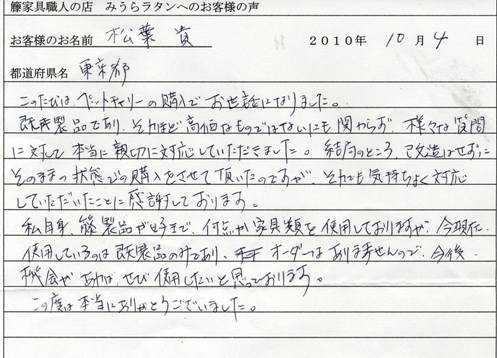 籐家具職人の店　みうらラタンへのお客様の声
お客様のお名前　松葉 貴　２０１０年 10 月 4 日
都道府県名　東京都
このたびは ペットキャリーの購入で お世話になりました。
既存製品であり、それほど高価なものではないにも関わらず、様々な質問
に対して本当に親切に対応していただきました。結局のところ、改造はせずに
そのままの状態での購入をさせて頂いたのですが、それでも気持ちよく対応
していただいたことに感謝しております。
私自身、籐製品が好きで、何点か家具類を使用しておりますが、今現在
使用しているのは既製品のみであり、オーダーはありませんので、今後
機会があれば、ぜひ使用したいと思っております。
この度は本当にありがとうございました。